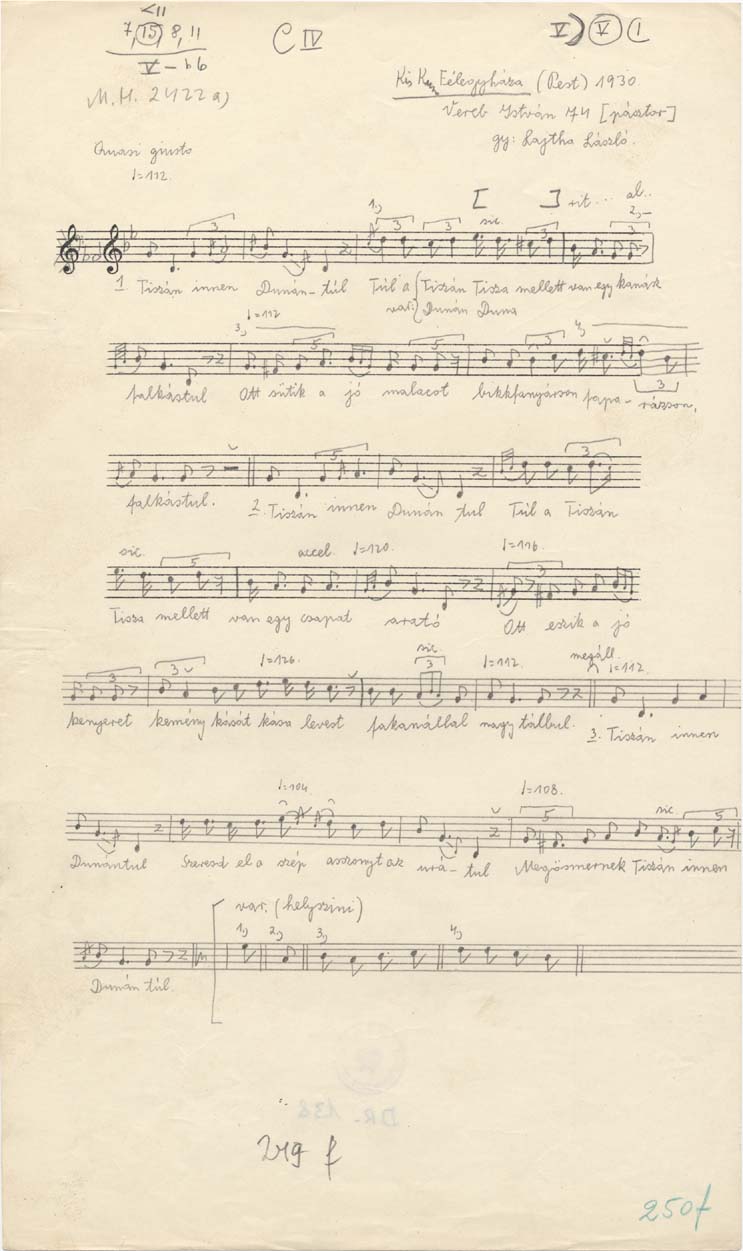 <11
7, 15, 8, 11
V – b6
C IV
V) V (
M.H. 2422 a)
Kis Kun Félegyháza (Pest) 1930
Vereb István 74 [pásztor]
gy: Lajtha László.
Quasi giusto
♩=112.
1,) [ sic. ] rit... al.. 2,
3 3 3 3 3
1. Tiszán innen Dunán-túl Túl a { Tiszán Tisza mellett van egy kanász
var: { Dunán Duna
♩=112
3,) 4,)
5 5 3 3
falkástul Ott sütik a jó malacot bikkfanyárson fapa-rázson,
5 3
falkástul. 2. Tiszán innen Dunán tul Túl a Tiszán
sic. 5 accel. ♩=120. ♩=116. 3
Tisza mellett van egy csapat arató Ott eszik a jó
3 3 ♩=126. sic. 3 ♩=112. megáll. ♩=112.
kenyeret kemény kását kása levest fakanállal nagy tálbul. 3. Tiszán innen
♩=104. ♩=108. 5 sic. 5
Dunántul Szeresd el a szép asszonyt az urá-tul Megösmernek Tiszán innen
var. (helyszini)
1,) 2,) 3,) 4,)
Dunán túl.
DR. 138
219 f
250f